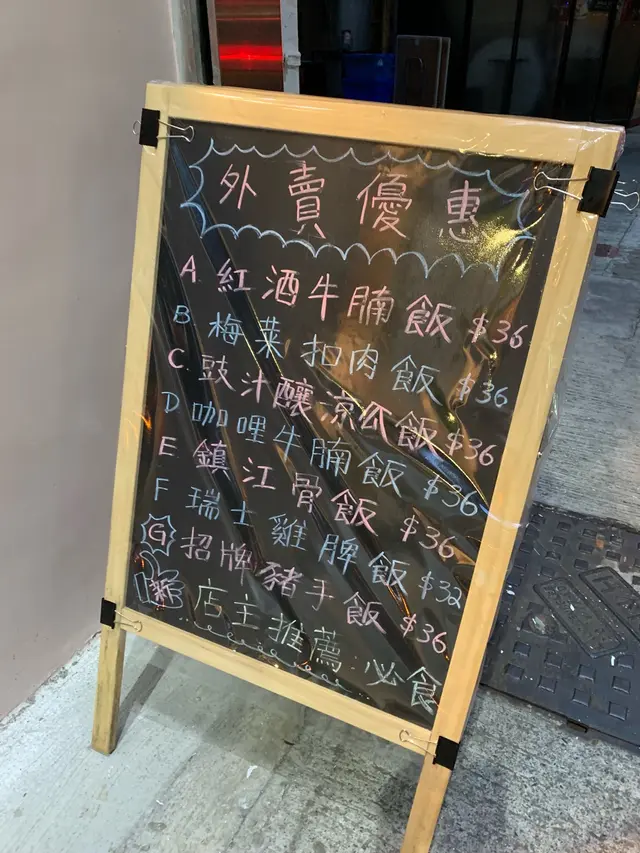 外賣優惠
A. 紅酒牛腩飯 $36
B. 梅菜扣肉飯 $36
C. 豉汁釀涼瓜飯 $36
D 咖哩牛腩飯 $36
E 鎮江骨飯 $36
F 瑞士雞脾飯 $32
G 招牌豬手飯 $36
新 店主推薦.必食